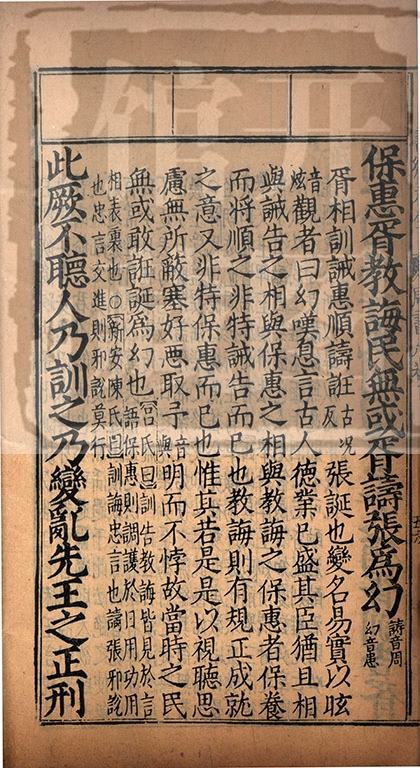 保惠胥教誨民無或胥譸張為幻譸音周幻音患
胥相訓誡惠順譸誑古况反張誕也變名易實以眩
音炫觀者曰幻嘆息言古人德業已盛其臣猶且相
與誡告之相與保惠之相與教誨之保惠者保養
而将順之非特誡告而已也教誨則有規正成就
之意又非特保惠而已也惟其若是是以視聽思
慮無所蔽塞好惡取予音與明而不悖故當時之民
無或敢誑誕為幻也呂氏曰訓告教誨皆見於言語保惠則調護於日用功用
相表裏也○新安陳氏曰訓誨忠言也譸張邪説也忠言交進則邪説莫行
此厥不聽人乃訓之乃變亂先王之正刑